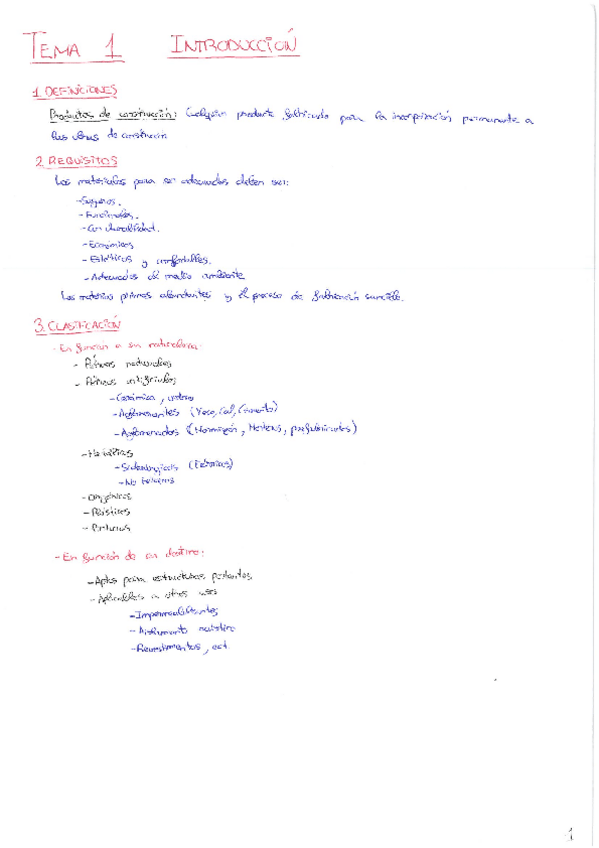 TEMA 1 INTRODUCCIÓN
1. DEFINICIONES
Productos de construcción: Cualquier producto fabricado para la incorporación permanente a
las obras de construcción
2. REQUISITOS
Los materiales para ser adecuados deben ser:
- Seguros.
- Funcionales.
- Con durabilidad.
- Económicos
- Estéticos y confortables.
- Adecuados al medio ambiente
Las materias primas abundantes y el proceso de fabricación sencillo.
3. CLASIFICACIÓN
- En función a su naturaleza:
- Pétreos naturales
- Pétreos artificiales
- Cerámica, vidrios
- Aglomerantes (Yeso, Cal, Cemento)
- Aglomerados (Hormigón, Morteros, prefabricados)
- Metálicos
- Siderúrgicos (Férricos)
- No férricos
- Orgánicos
- Plásticos
- Pinturas
- En función de su destino:
- Aptos para estructuras portantes
- Aplicables a otros usos
- Impermeabilizantes
- Aislamiento
- Revestimientos, ect
1